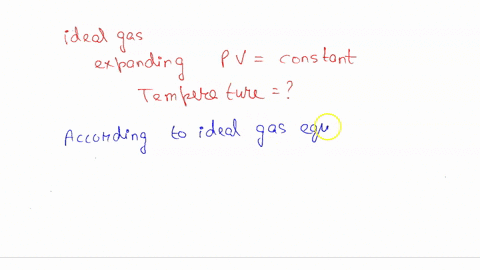 ideal gas
expanding PV = constant
Temperature = ?
According to ideal gas equ